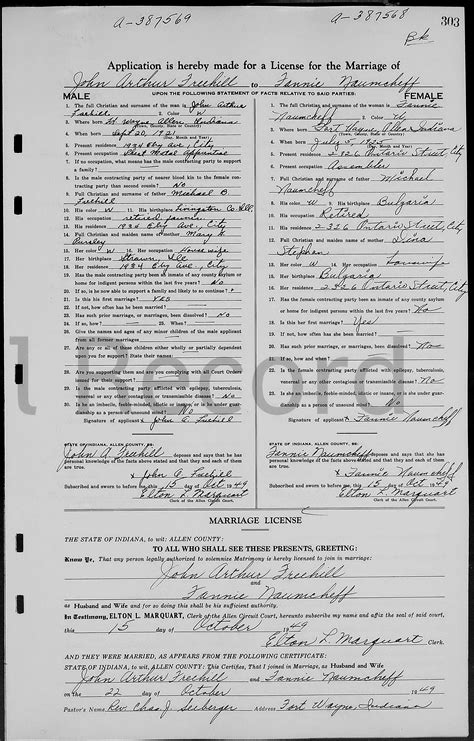 A-387569 A-387568
303
Application is hereby made for a License for the Marriage of
John Arthur Freehill to Fannie Naumcheff
MALE UPON THE FOLLOWING STATEMENT OF FACTS RELATIVE TO SAID PARTIES: FEMALE
1. The full Christian and surname of the man is John Arthur
Freehill 2. Color W
3. Where born Ft Wayne Allen Indiana
(Town, County, State or Country)
4. When born Sept 20, 1921
5. Present residence 1934 Eby Ave., City
6. Present occupation Sheet Metal Apprentice
7. If no occupation, what means has the male contracting party to support
a family?
8. Is the male contracting party of nearer blood kin to the female con-
tracting party than second cousin? No
9. Full Christian and surname of father Michael B.
Freehill
10. His color W 11. His birthplace Livingston Co Ill.
12. His occupation retired farmer
13. His residence 1934 Eby Ave., City
14. Full Christian and maiden names of mother Mary K.
Pursley
15. Her color W 16. Her occupation Housewife
17. Her birthplace Strawn, Ill
18. Her residence 1934 Eby Ave., City
19. Has the male contracting party been an inmate of any county asylum or
home for indigent persons within the last five years? No
20. If so, is he now able to support a family and likely to so continue?
21. Is this his first marriage? Yes
22. If not, how often has he been married?
23. Has such prior marriage, or marriages, been dissolved? No
24. If so, how? 25. When?
26. Give the names and ages of any minor children of the male applicant
from all former marriages
27. Are any or all of these children either wholly or partially dependent
upon you for support? State their names:
28. Are you supporting them and are you complying with all Court Orders
issued for their support?
29. Is the male contracting party afflicted with epilepsy, tuberculosis,
venereal or any other contagious or transmissible disease? No
30. Is he an imbecile, feeble-minded, idiotic or insane, or is he under guar-
dianship as a person of unsound mind? No
Signature of applicant x John A. Freehill
STATE OF INDIANA, ALLEN COUNTY, SS:
John A Freehill deposes and says that he has
personal knowledge of the facts above stated and that they and each of them
are true.
x John A. Freehill
Subscribed and sworn to before me, this 15 day of Oct 1949
Elton L. Marquart
Clerk of the Allen Circuit Court.
1. The full Christian and surname of the woman is Fannie
Naumcheff 2. Color W
3. Where born Fort Wayne, Allen, Indiana
(Town, County, State or Country)
4. When born July 5,
5. Present residence 2326 Ontario Street, City
6. Present occupation Assembler
7. Full Christian and surname of father Michael
Naumcheff
8. His color W 9. His birthplace Bulgaria
10. His occupation Retired
11. His residence 2326 Ontario Street, City
12. Full Christian and maiden name of mother
Stephan
13. Her color W 14. Her occupation Housewife
15. Her birthplace Bulgaria
16. Her residence 2326 Ontario Street, City
17. Has the female contracting party been an inmate of any county asylum
or home for indigent persons within the last five years? No
18. Is this her first marriage? Yes
19. If not, how often has she been married?
20. Has such prior marriage, or marriages, been dissolved? No
Signature of applicant x Fannie Naumcheff
STATE OF INDIANA, ALLEN COUNTY, SS:
Fannie Naumcheff deposes and says that she has
personal knowledge of the facts above stated and that they and each of them
are true.
x Fannie Naumcheff
Subscribed and sworn to before me, this 15 day of Oct 1949
Elton L. Marquart
Clerk of the Allen Circuit Court.
MARRIAGE LICENSE
THE STATE OF INDIANA, to wit: ALLEN COUNTY:
TO ALL WHO SHALL SEE THESE PRESENTS, GREETING:
Know Ye, That any person legally authorized to solemnize Matrimony is hereby licensed to join in marriage:
John Arthur Freehill
and Fannie Naumcheff
as Husband and Wife and for so doing this shall be his sufficient authority.
In Testimony, ELTON L. MARQUART, Clerk of the Allen Circuit Court, hereunto subscribe my name and affix the seal of said court,
this 15 day of October 1949
Elton L. Marquart Clerk.
AND THEY WERE MARRIED, AS APPEARS FROM THE FOLLOWING CERTIFICATE:
STATE OF INDIANA, to wit, ALLEN COUNTY: This Certifies, That I joined in Marriage, as Husband and Wife
John Arthur Freehill and Fannie Naumcheff
on the 22 day of October 1949
Pastor's Name Rev. Chas. J. Seeberger Address Fort Wayne, Indiana